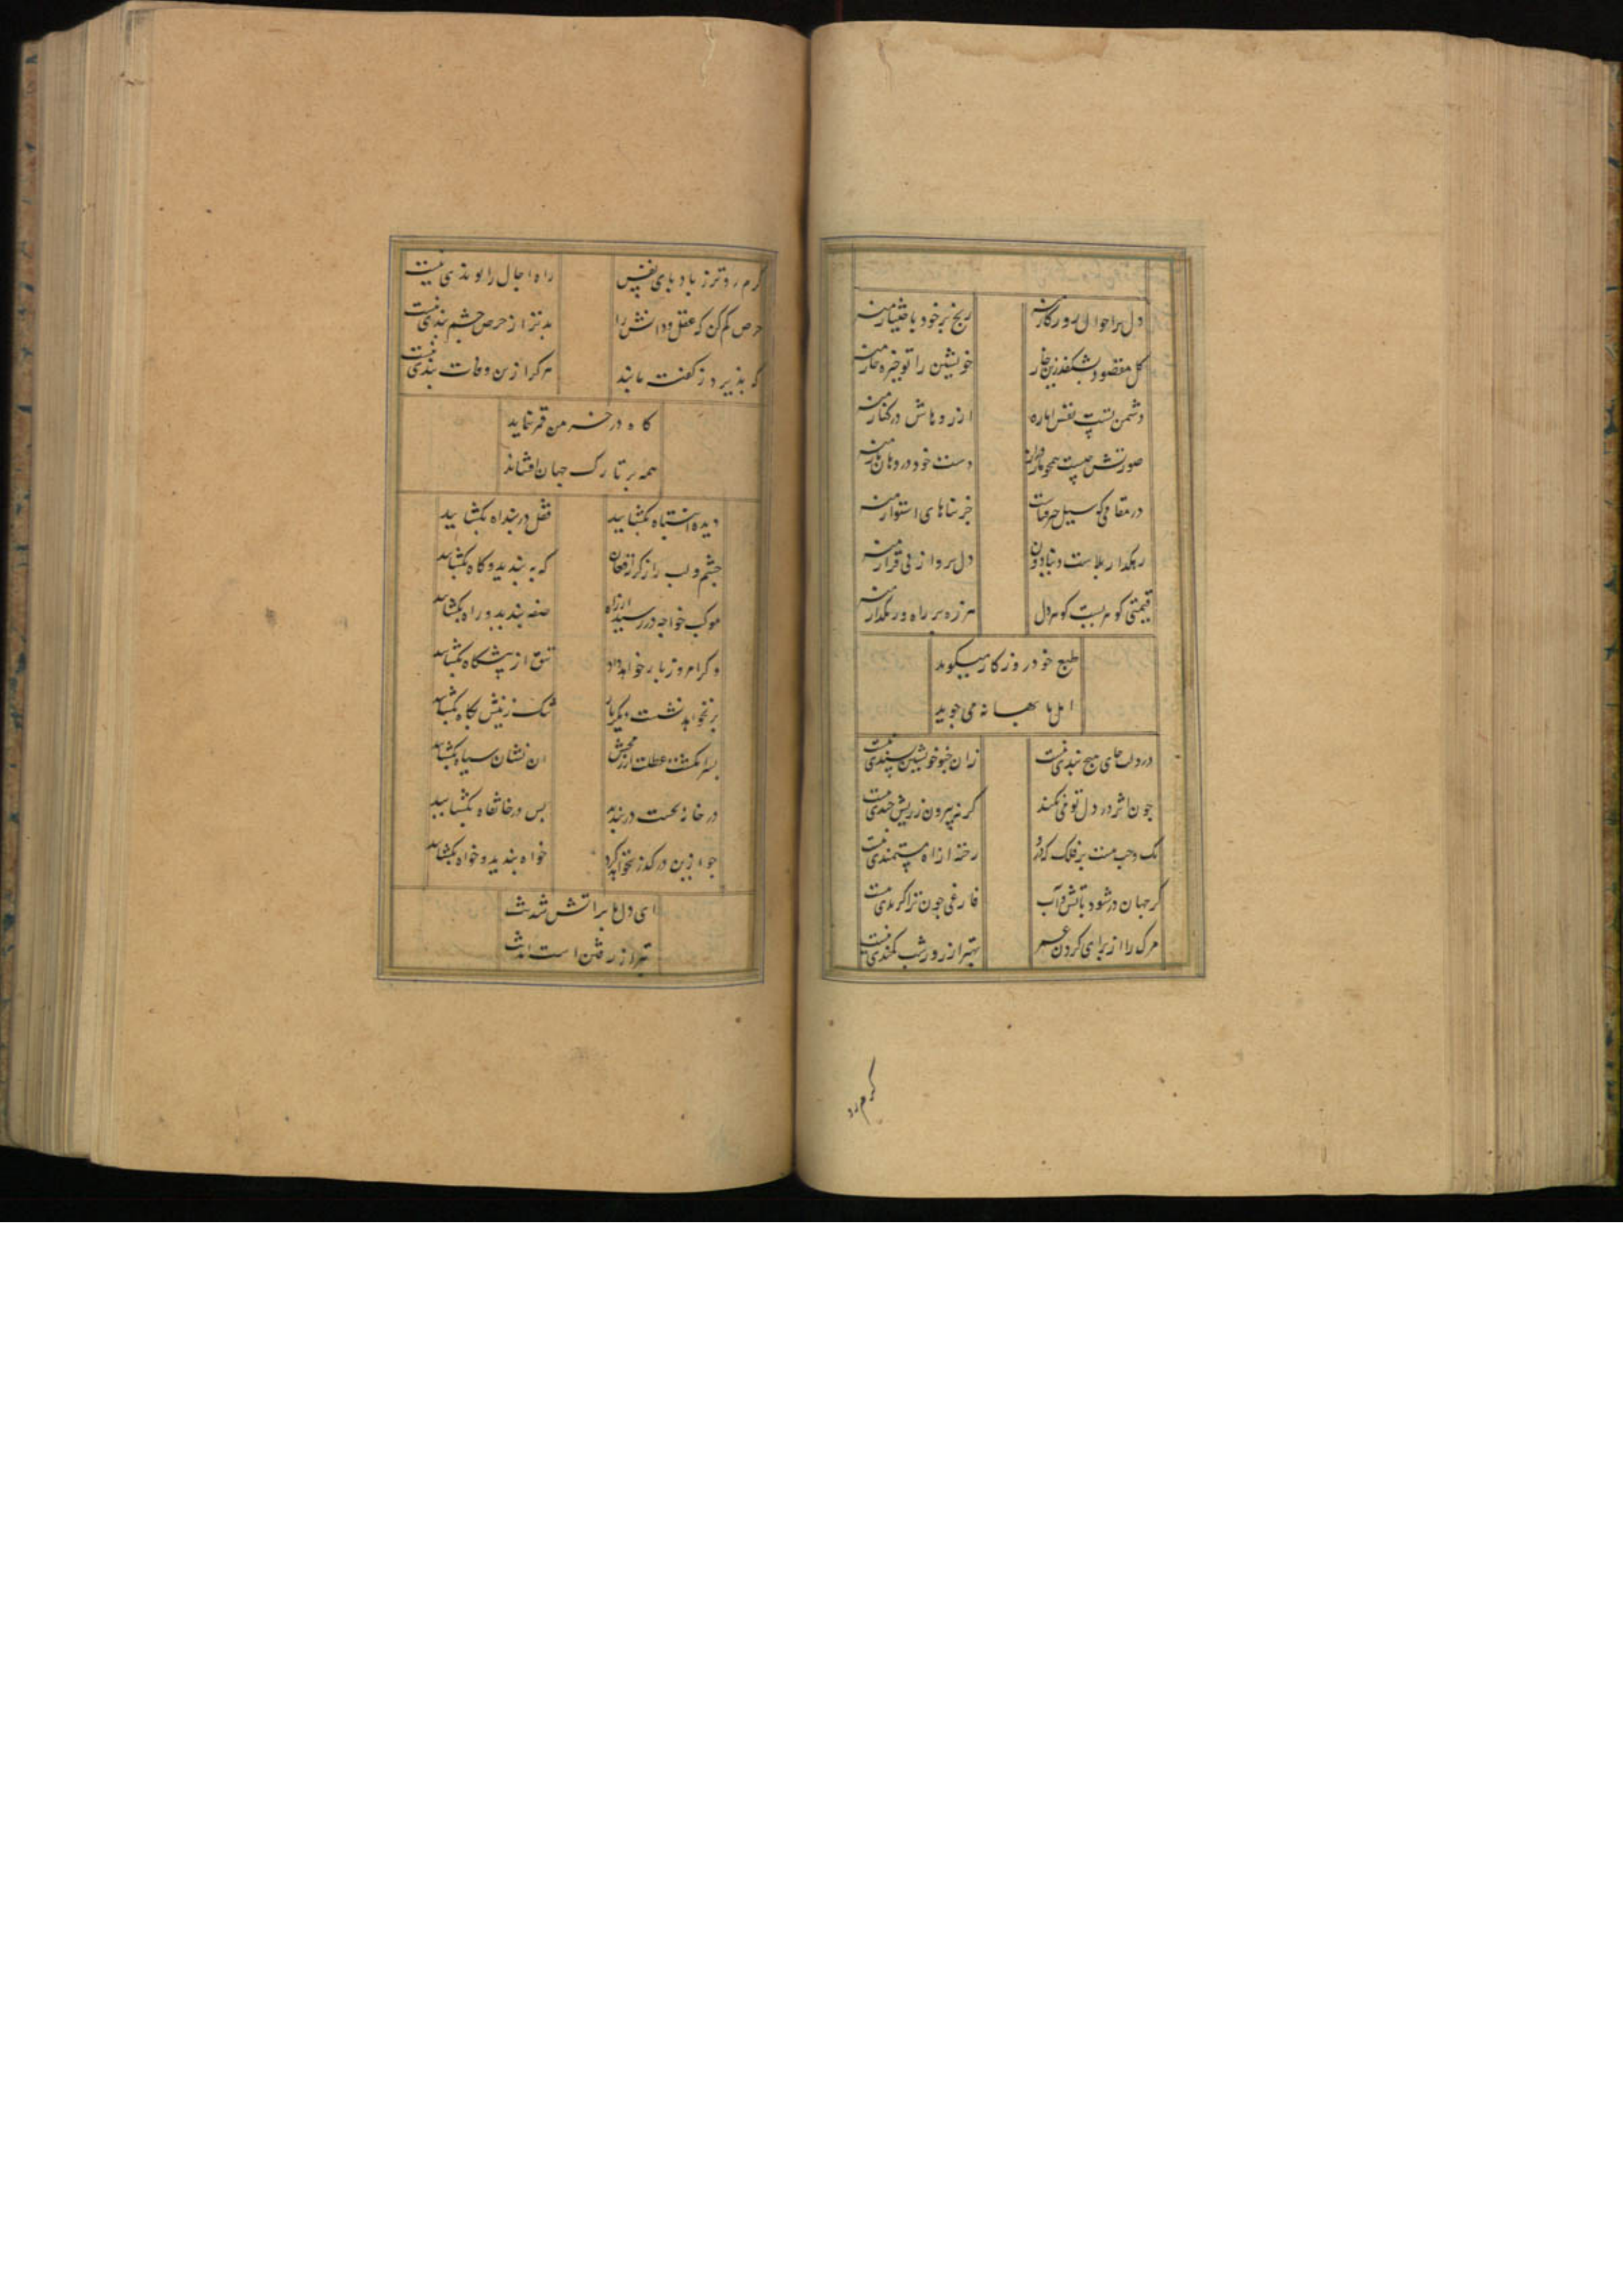 دل بر احوال روزکار منه رنج بر خود باختیار منه
کل مقصود نشکفد زین خار خویشتن را تو خیره خار منه
دشمن تست نفس اماره ارزوهاش در کنار منه
صورتش چیست همچو مار دست خود در دهان مار منه
در مقامی که سیل حرفات خر بناهای استوار منه
رهکذار بلاست دنیا دون دل برو از پی قرار منه
قیمتی کوهریست کوهر دل هرزه بر راه و رهکذار منه
طبع خود روزکار میکوید
اهل ما بهانه می جوید
در دلت جای هیچ بندی نیست زان خبو خویشتن پسندی نیست
جون اثر در دل تو نمی کند کر نه بیرون ز ریش خندی نیست
یک وجب نیست بر فلک که درو رخنه از اه مستمندی نیست
کر جهان در شود باتش و آب فارغی جون ترا کزندی نیست
مرک را از برای کردن عمر بهتر از روز و شب کمندی نیست
کرم رو
کرم روتر ز باد پای نفس راه اجال را نوندی نیست
حرص کم کن که عقل و دانش را بدتر از حرص جشم بندی نیست
که پذیرد ز کفتت مانند مرکرا زین وفات بندی نیست
کاه در خرمن قمر نماید
همه بر تارک جهان افشاند
دیده اشتباه بکشایید قفل در بند اه بکشایید
جشم و لب را ز کریه و فغان که ببندید و کاه بکشایید
موکب خواجه در رسید از راه صفه بندید و راه بکشایید
وکر امروز بار خواهد داد تتق از پیشکاه بکشایید
بر نخواهد نشست دیکر بار تنک زینش بکاه بکشایید
بسر مکشت عطلت ارزجش ان نشان سیاه بکشایید
در خانه نخست در بندید بس در خانقاه بکشایید
جو ازین در کذر نخواهد کرد خواه بندید و خواه بکشایید
ای دل ما بر اتش شدنت
بتر از رفتن است امدنت